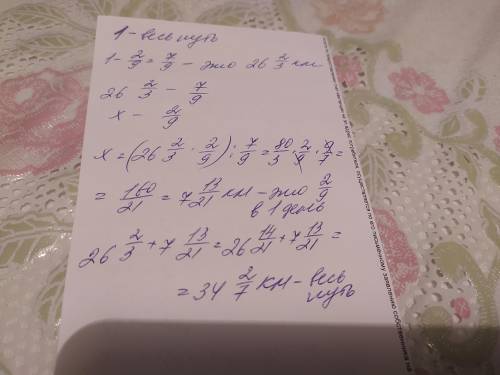 1 - весь путь
1 - 2/9 = 7/9 - это 26 2/3 км
26 2/3 - 7/9
x - 2/9
x = (26 2/3 · 2/9) : 7/9 = 80/3 · 2/9 · 9/7 =
= 160/21 = 7 13/21 км - это 2/9
в 1 день
26 2/3 + 7 13/21 = 26 14/21 + 7 13/21 =
= 34 2/7 км - весь
путь